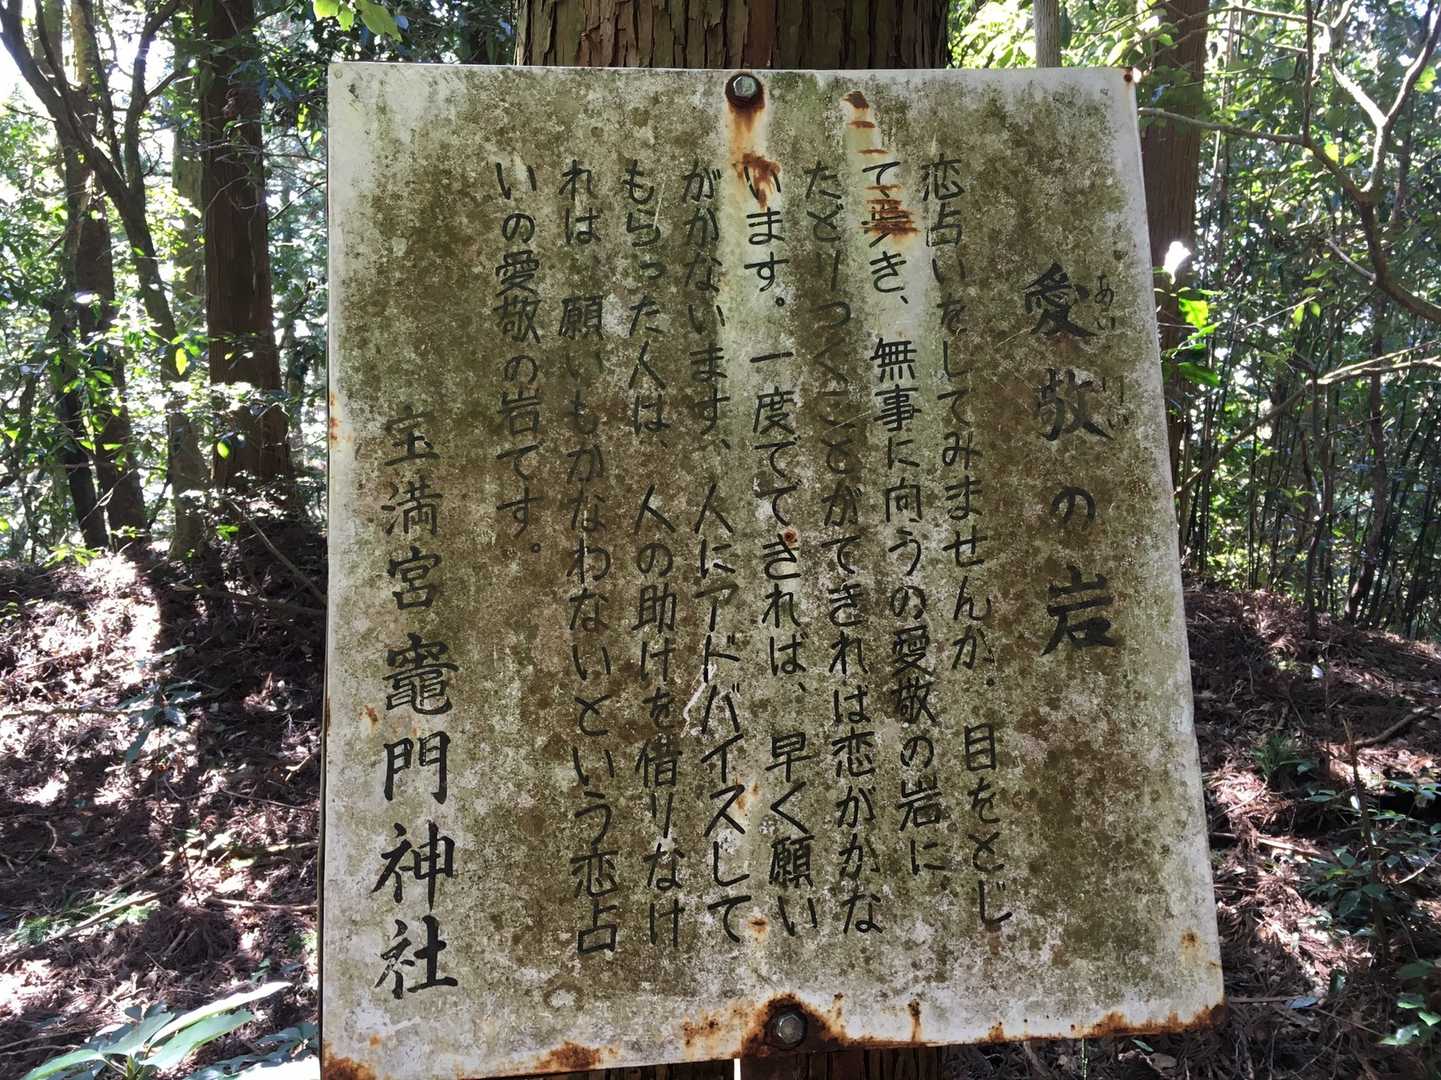 愛敬の岩
あいけい
恋占いをしてみませんか。目をとじ
て歩き、無事に向うの愛敬の岩に、
たどりつくことができれば恋がかな
います。一度でできれば、早く願い
がかないます、人にアドバイスして
もらった人は、人の助けを借りなけ
れば、願いもかなわないという恋占
いの愛敬の岩です。
宝満宮竈門神社